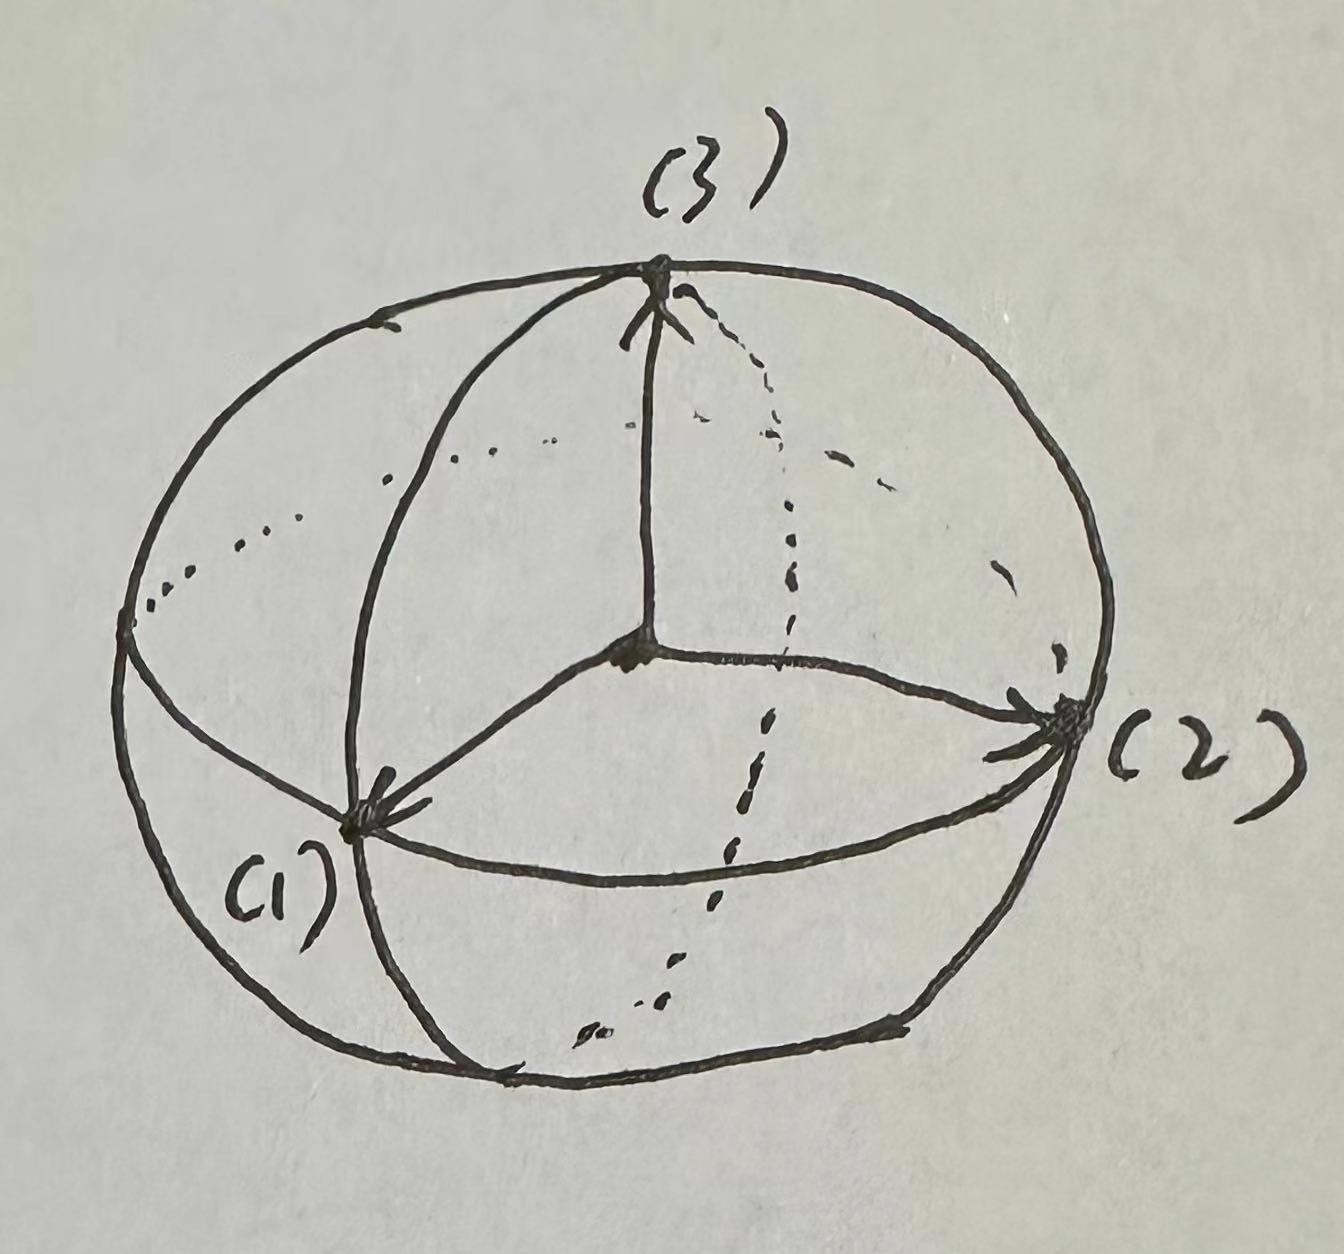 (3)
(2)
(1)